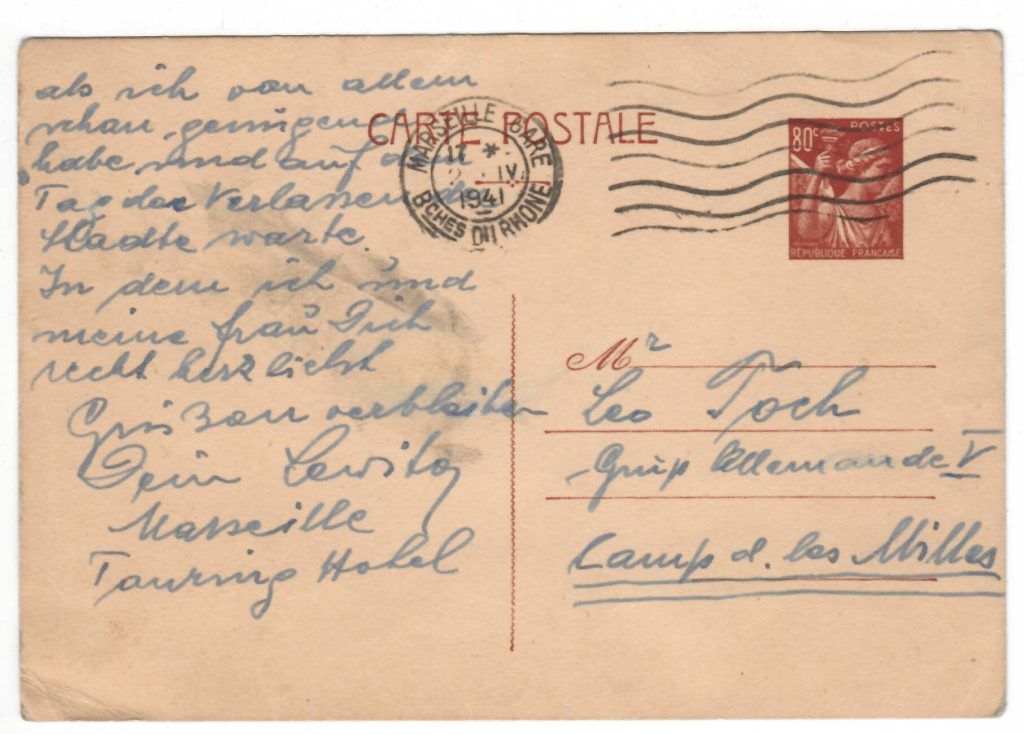 als ich von allem
schon genügend
habe und auf den
Tag des Verlassen der
Städte warte.
In dem ich und
meine Frau Dich
recht herzlichst
Grüßen verbleiben
Dein Lewitz
Marseille
Touring Hotel
CARTE POSTALE
MARSEILLE GARE
17 *
IV
1941
BCHES DU RHONE
80c POSTES
RÉPUBLIQUE FRANÇAISE
Mr
Leo Toch
Grup Allemande V
Camp d. les Milles